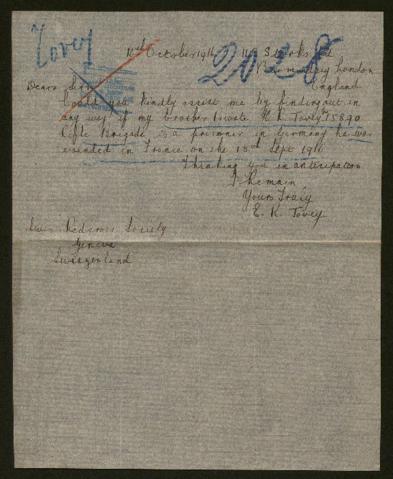 Tovey
2028
October 1916
London
England
Dears Sirs
Could you kindly assist me by finding out in
any way if my brother Private H. E. Tovey 5890
Rifle Brigade is a prisoner in Germany he was
wounded in France on the 15th Sept 1916
Thanking you in anticipation
I Remain
Yours Truly
E. K. Tovey
Redcross Society
Geneva
Switzerland